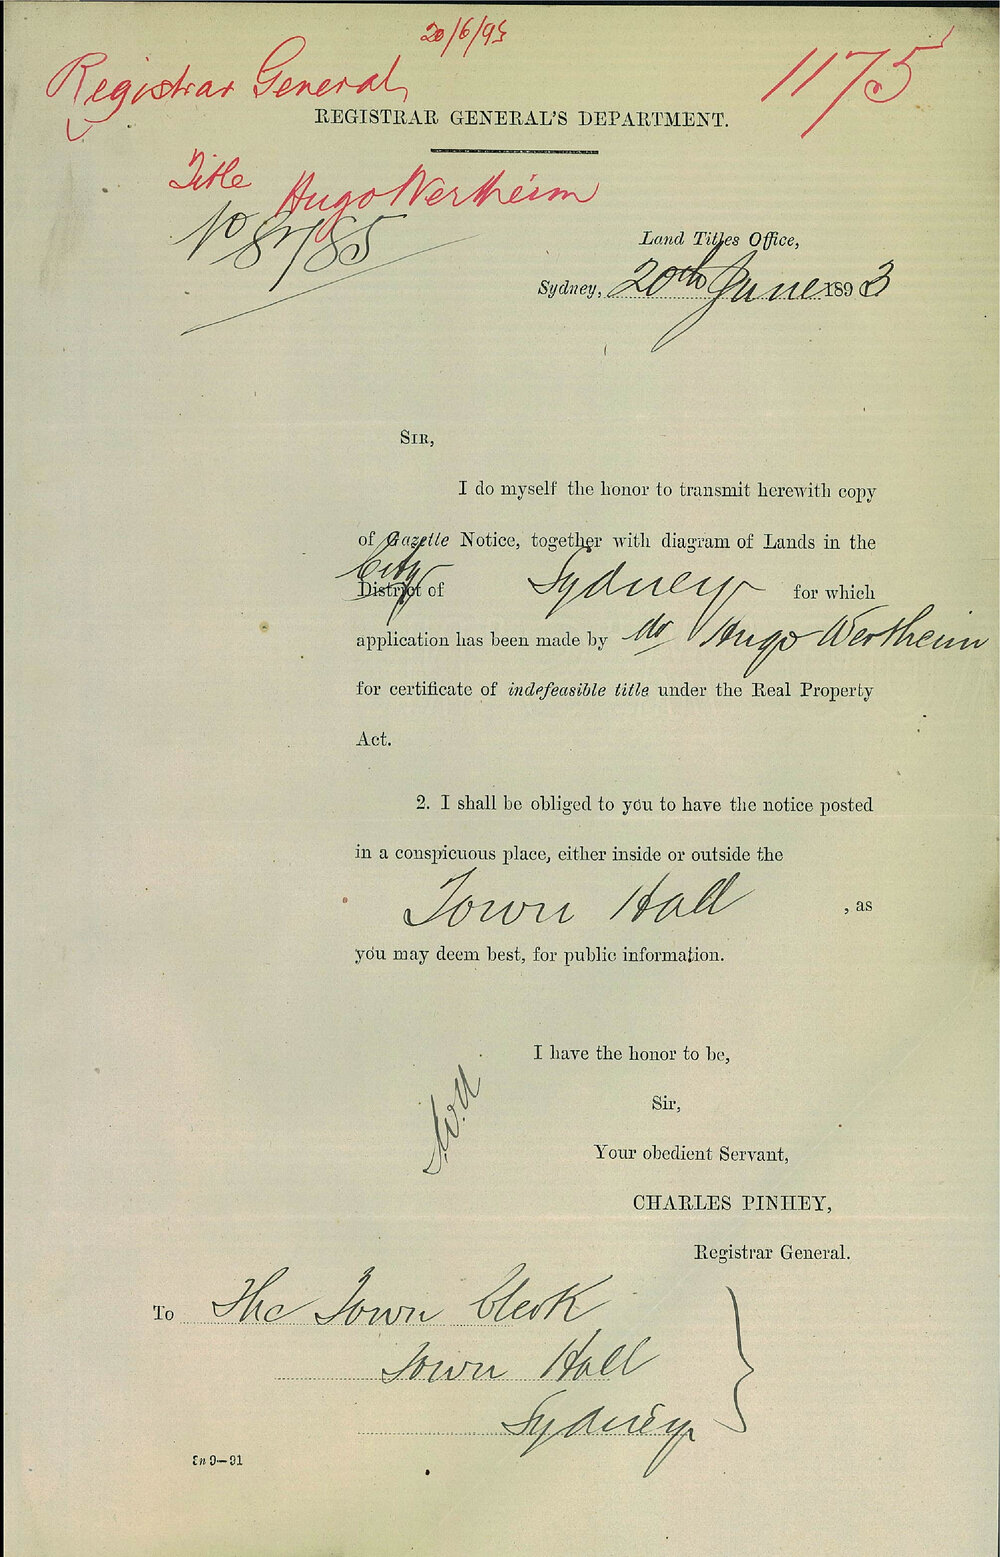 20/6/93
Registrar General
1175
REGISTRAR GENERAL'S DEPARTMENT.
Title Hugo Wertheim
No 8785
Land Titles Office,
Sydney, 20th June 1893
SIR,
I do myself the honor to transmit herewith copy
of Gazette Notice, together with diagram of Lands in the
City
District of Sydney for which
application has been made by Mr Hugo Wertheim
for certificate of indefeasible title under the Real Property
Act.
2. I shall be obliged to you to have the notice posted
in a conspicuous place, either inside or outside the
Town Hall , as
you may deem best, for public information.
I have the honor to be,
Sir,
Your obedient Servant,
CHARLES PINHEY,
Registrar General.
To The Town Clerk
Town Hall
Sydney